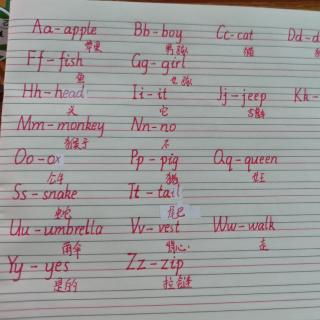 Aa-apple Bb-boy Cc-cat Dd-d
苹果 男孩 猫
Ff-fish Gg-girl
鱼 女孩
Hh-head Ii-it Jj-jeep Kk-
头 它
Mm-monkey Nn-no
猴子 不
Oo-ox Pp-pig Qq-queen
公牛 猪 女王
Ss-snake Tt-tail
蛇 尾巴
Uu-umbrella Vv-vest Ww-walk
雨伞 背心 走
Yy-yes Zz-zip
是的 拉链